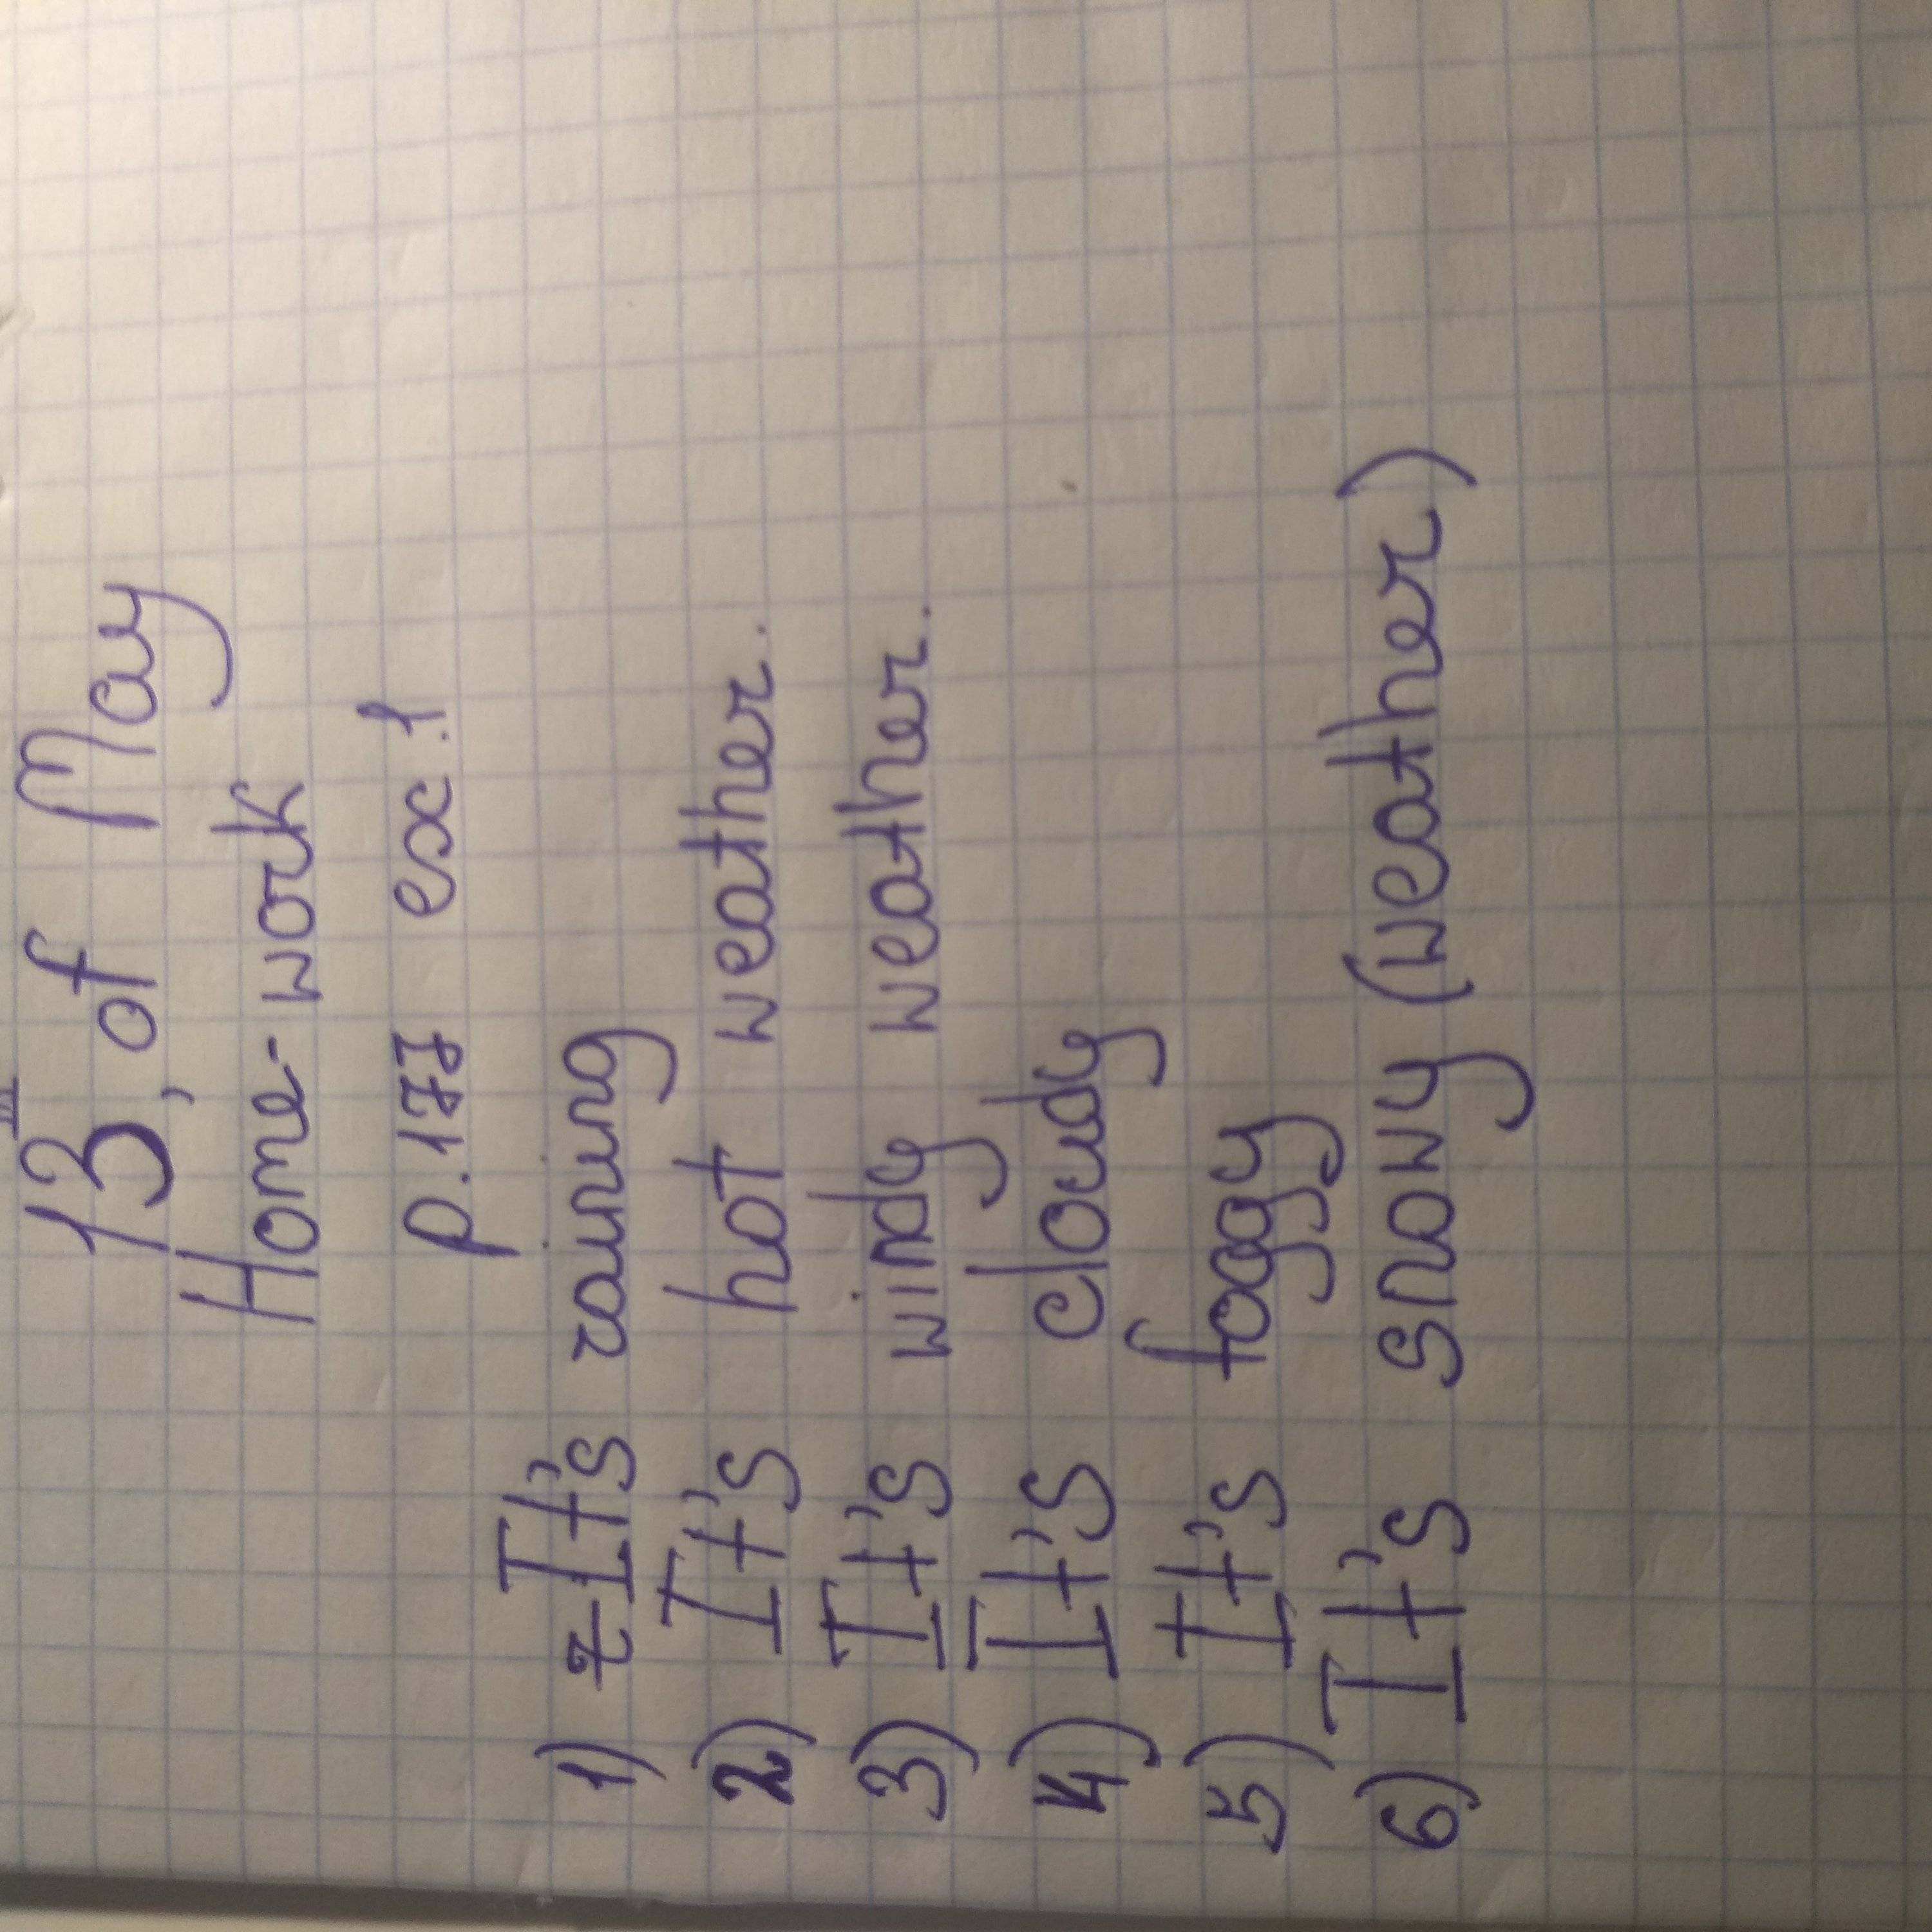 13, of May
Home-work
p. 177 ex. 1
1) It's raining
2) It's hot weather.
3) It's windy weather.
4) It's cloudy
5) It's foggy
6) It's snowy (weather)